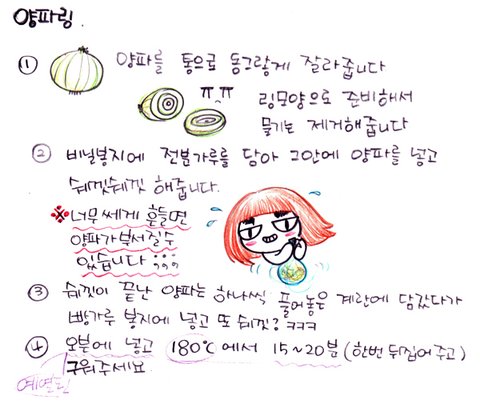 양파링
① 양파를 통으로 동그랗게 잘라줍니다
ㅠ.ㅠ 링모양으로 준비해서
물기는 제거해줍니다
② 비닐봉지에 전분가루를 담아 그안에 양파를 넣고
쉐낏쉐낏 해줍니다.
※너무쎄게 흔들면
양파가 부서질수
있습니다 ;;;;
③ 쉐낏이 끝난 양파는 하나씩 풀어놓은 계란에 담갔다가
빵가루 봉지에 넣고 또 쉐낏? ㅋㅋㅋ
④ 오븐에 넣고 180℃에서 15~20분 (한번 뒤집어 주고)
구워주세요
예열된